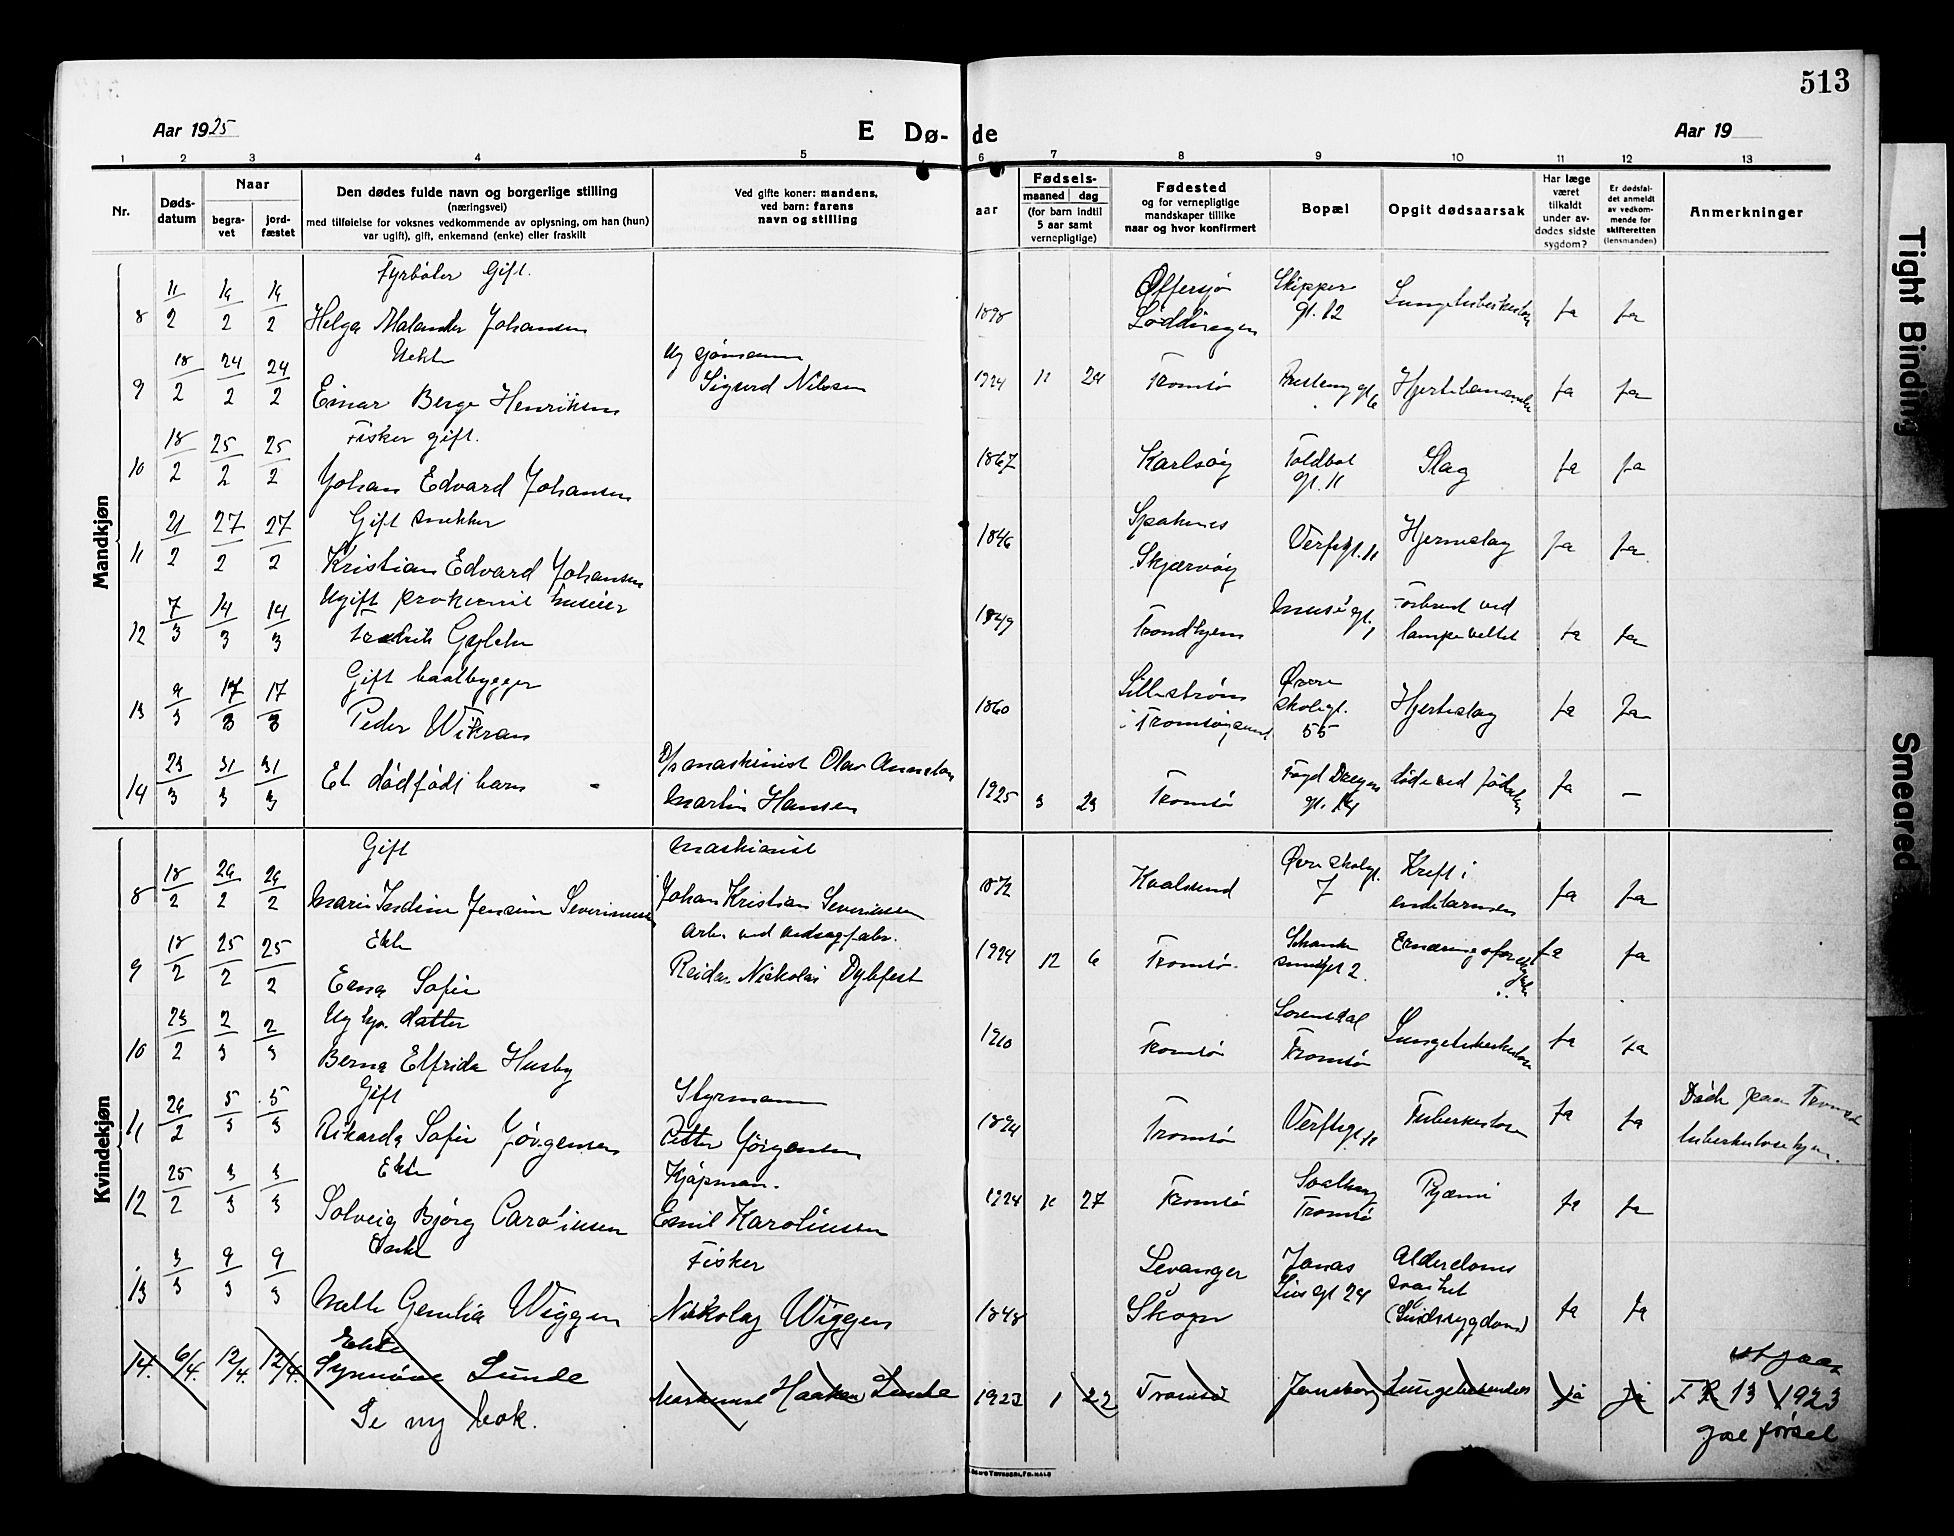 513
Aar 1925
E Dø-
de
Aar 19
1 2 3 4 5 6 7 8 9 10 11 12 13
Nr.
Døds-
datum
Naar
begra-
vet
jord-
fæstet
Den dødes fulde navn og borgerlige stilling
(næringsvei)
med tilføielse for voksnes vedkommende av oplysning, om han (hun)
var ugift), gift, enkemand (enke) eller fraskilt
Ved gifte koner: mandens,
ved barn: farens
navn og stilling
aar
Fødsels-
maaned dag
(for barn indtil
5 aar samt
vernepligtige)
Fødested
og for vernepligtige
mandskaper tillike
naar og hvor konfirmert
Bopæl
Opgit dødsaarsak
Har læge
været
tilkaldt
under av-
dødes sidste
sygdom?
Er dødsfal-
det anmeldt
av vedkom-
mende for
skifteretten
(lensmanden)
Anmerkninger
Mandkjøn
Fyrbøter Gift.
8 11/2 14/2 14/2 Helga Malander Johansen 1898 Offersjø Løddingen Skipper gt. 12 Lungetuberkulose ja ja
Uekte
9 18/2 24/2 24/2 Einar Berge Henriksen
Ug sjømann
Sigurd Nilssen
1924 11 24 Tromsø ja ja
Fisker gift.
10 18/2 25/2 25/2 Johan Edvard Johansen 1867 Karlsøy Toldbod gt. 11 Slag ja ja
Gift snekker
11 21/2 27/2 27/2 Kristian Edvard Johansen 1846 Spaknes Skjærvøy Verftsgt. 11 Hjerneslag ja ja
Ugift
12 7/3 14/3 14/3 Fredrik 1849 Trondhjem Forbrent ved lampeveltet ja ja
Gift baatbygger
13 9/3 17/3 17/3 Peder Wikran 1860 i Tromsøysund Øvre skolegt. 55 Hjerteslag ja ja
14 23/3 31/3 31/3 Et dødfødt barn
maskinist Olav
Martin Hansen
1925 3 23 Tromsø døde ved fødselen ja —
Kvindekjøn
Gift
8 18/2 24/2 24/2 Marie Jensine Severinsen
Maskinist
Johan Kristian Severinsen
1872 Kvalsund Øvre skolegt. 7 Kreft i endetarmen ja ja
Ekte
9 18/2 25/2 25/2 Erna Sofie
Arb. ved
Reidar Nickolai
1924 12 6 Tromsø. ja ja
Ug datter
10 23/2 2/3 2/3 Berna Elfrida Husby 1910 Tromsø Tromsø Lungetuberkulose ja ja
Gift
11 24/2 5/3 5/3 Rikarda Sofie Jørgensen
Styrmann
Petter Jørgensen
1894 Tromsø Verftsgt. 11 Tuberkulose ja ja
Døde paa Tromsø
tuberkulosehjem.
Ekte
12 25/2 3/3 3/3 Solveig Bjørg Carolinsen
Kjøpman.
Emil Karolinssen
1924 11 27 Tromsø Tromsø Pyæmi ja ja
Enke
13 3/3 9/3 9/3 Wiggen
Fisker
Nikolay Wiggen
1848 Levanger Skogn Jonas Lies gt 24 Alderdoms svakhet ja ja
Ekte
14. 6/4. 12/4. 12/4. Synnøve Lunde
Maskinist Haakon Lunde
1923 1 22 Tromsø Lungetuberkulose ja ja
Se ny bok.
utgaar
F R 13 1923
Tight Binding
Smeared